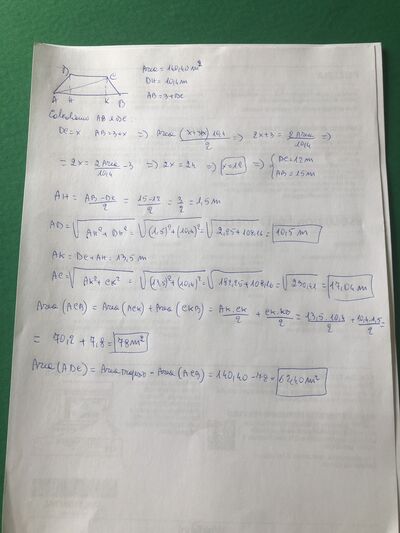 D C
A H K B
Area = 140,40 m²
DH = 10,4 m
AB = 3+DC
Calculiamo AB e DC:
DC = x AB = 3+x => Area = (x+3+x)10,4/2 => 2x+3 = 2Area/10,4 =>
=> 2x = 2Area/10,4 - 3 => 2x = 24 => x=12 => { DC = 12 m AB = 15 m
AH = AB-DC/2 = 15-12/2 = 3/2 = 1,5 m
AD = √AH²+DH² = √(1,5)²+(10,4)² = √2,25+108,16 = 10,5 m
AK = DC+AH = 13,5 m
AC = √AK²+CK² = √(13,5)²+(10,4)² = √182,25+108,16 = √290,41 = 17,04 m
Area (ACB) = Area (ACK) + Area (CKB) = AK.CK/2 + CK.KB/2 = 13,5.10,4/2 + 10,4.1,5/2 =
= 70,2 + 7,8 = 78 m²
Area (ADC) = Area trapezio - Area (ACB) = 140,40 - 78 = 62,40 m²